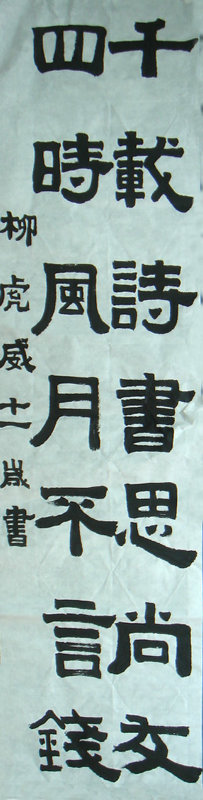 千載詩書思尚友
四時風月不言錢
柳虎威十一歲書